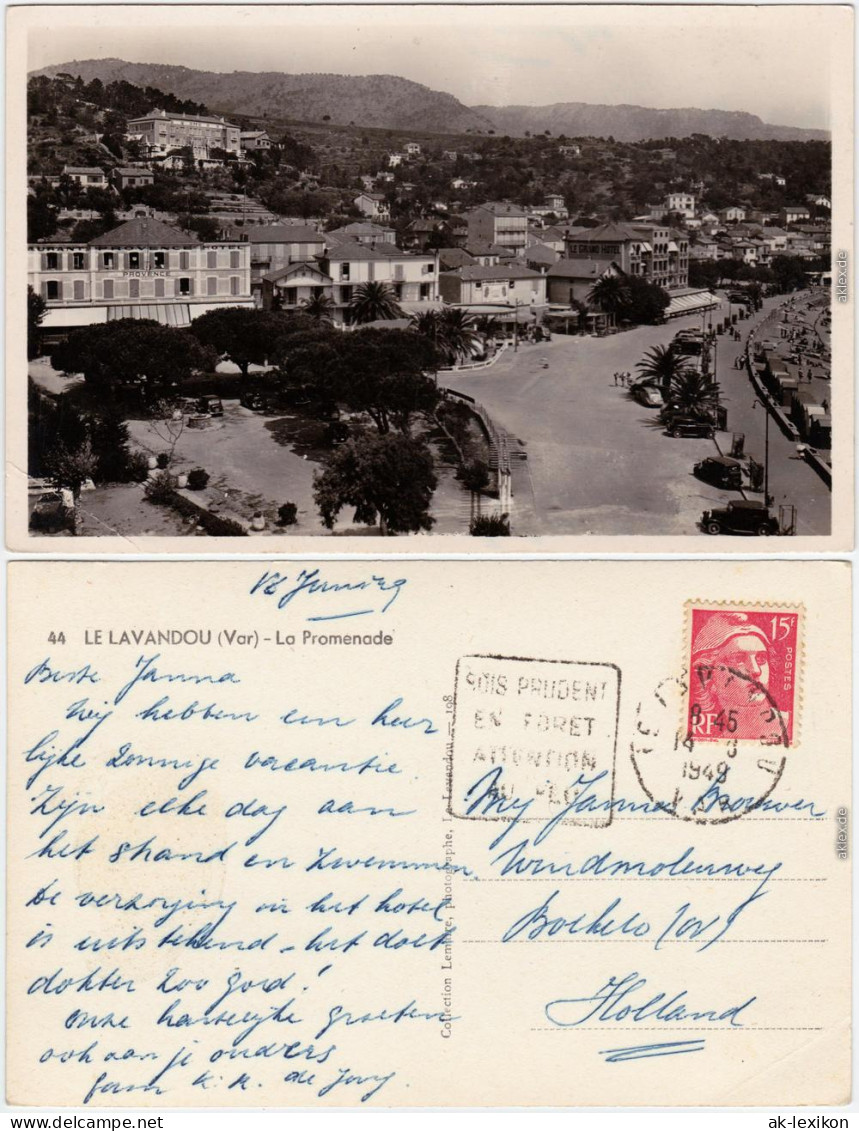 PROVENCE
44 LE LAVANDOU (Var) - La Promenade
Beste Janna
Wij hebben een heer
lijke zonnige vacantie.
Zijn elke dag aan
het strand en zwemmen.
De verzorging in het hotel
is uitstekend - het doet
dokter zoo goed!
Onze hartelijke groeten
ook aan je ouders
fam K. R. de Jong.
Collection Lemaire, photographe, Le Lavandou — 198
SOIS PRUDENT
EN FORET
ATTENTION
AU FEU
15F
POSTES
RF
8-45
14
1949
VAR
Mej Janna Brouwer
Windmolenweg
Boekelo (Ov)
Holland
aklexikon.de
aklexikon.de
aklexikon.de
aklexikon.de
ak-lexikon
ak-lexikon.com